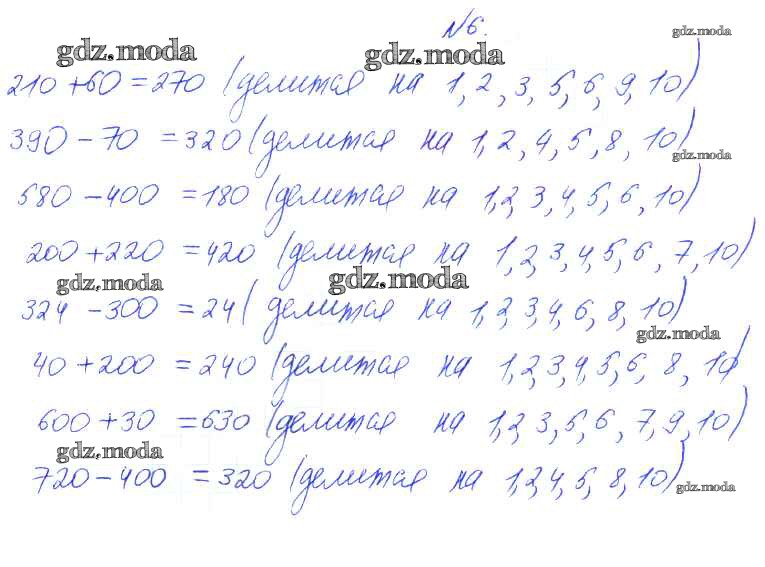 №6.
gdz.moda
gdz.moda
gdz.moda
210 + 60 = 270 (делится на 1, 2, 3, 5, 6, 9, 10)
390 - 70 = 320 (делится на 1, 2, 4, 5, 8, 10)
gdz.moda
580 - 400 = 180 (делится на 1, 2, 3, 4, 5, 6, 10)
200 + 220 = 420 (делится на 1, 2, 3, 4, 5, 6, 7, 10)
gdz.moda
gdz.moda
324 - 300 = 24 (делится на 1, 2, 3, 4, 6, 8, 10)
gdz.moda
40 + 200 = 240 (делится на 1, 2, 3, 4, 5, 6, 8, 10)
600 + 30 = 630 (делится на 1, 2, 3, 5, 6, 7, 9, 10)
gdz.moda
720 - 400 = 320 (делится на 1, 2, 4, 5, 8, 10)
gdz.moda